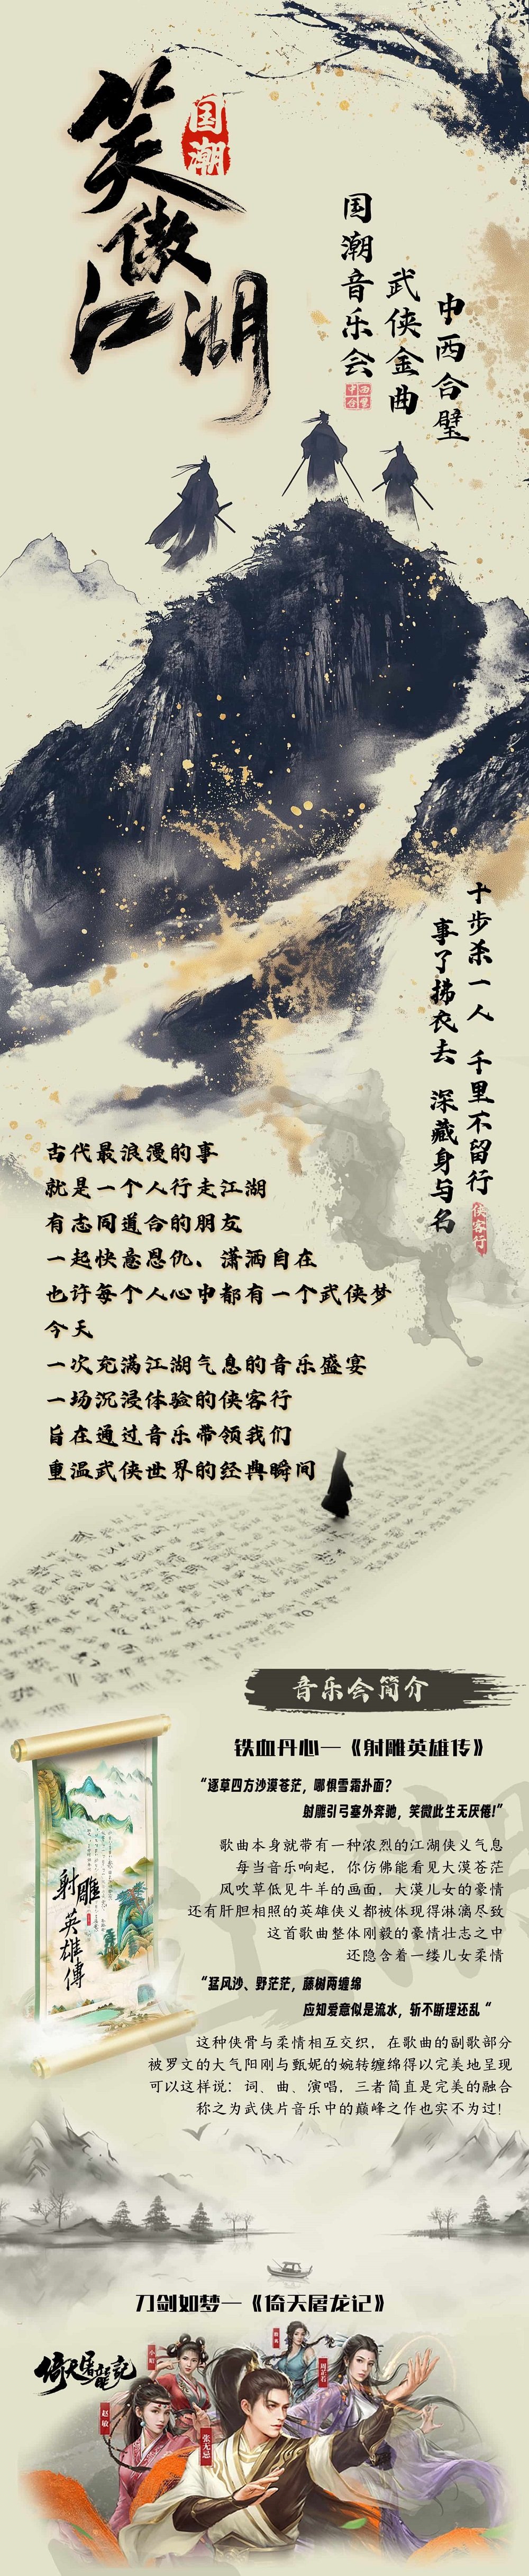 笑傲江湖
国潮
国潮音乐会
武侠金曲
中西合璧
中西合璧
十步杀一人 千里不留行
事了拂衣去 深藏身与名
侠客行
古代最浪漫的事
就是一个人行走江湖
有志同道合的朋友
一起快意恩仇、潇洒自在
也许每个人心中都有一个武侠梦
今天
一次充满江湖气息的音乐盛宴
一场沉浸体验的侠客行
旨在通过音乐带领我们
重温武侠世界的经典瞬间
音乐会简介
铁血丹心—《射雕英雄传》
“逐草四方沙漠苍茫，哪惧雪霜扑面？
射雕引弓塞外奔驰，笑微此生无厌倦!”
歌曲本身就带有一种浓烈的江湖侠义气息
每当音乐响起，你仿佛能看见大漠苍茫
风吹草低见牛羊的画面，大漠儿女的豪情
还有肝胆相照的英雄侠义都被体现得淋漓尽致
这首歌曲整体刚毅的豪情壮志之中
还隐含着一缕儿女柔情
射雕英雄傳
“猛风沙、野茫茫，藤树两缠绵
应知爱意似是流水，斩不断理还乱“
这种侠骨与柔情相互交织，在歌曲的副歌部分
被罗文的大气阳刚与甄妮的婉转缠绵得以完美地呈现
可以这样说：词、曲、演唱，三者简直是完美的融合
称之为武侠片音乐中的巅峰之作也实不为过!
江湖
刀剑如梦—《倚天屠龙记》
倚天屠龍記
小昭
周芷若
赵敏
张无忌